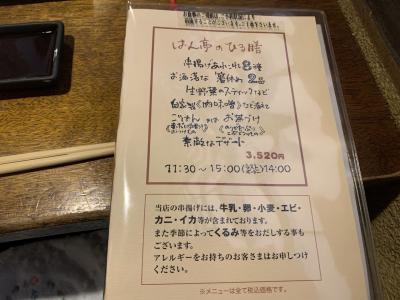 はん亭のひる膳
串揚げあれこれ8種
お洒落な箸休め2品
生野菜のスティックなど
自家製(肉味噌)など添えて
ごはん 又は お茶づけ
素敵なデザート
3,520円
11:30～15:00 14:00
当店の串揚げには、牛乳・卵・小麦・エビ・
カニ・イカ等が含まれております。
また季節によってくるみ等をお出しする事も
ございます。
アレルギーをお持ちのお客さまはお申しつけ
ください。
※メニューは全て税込価格です。